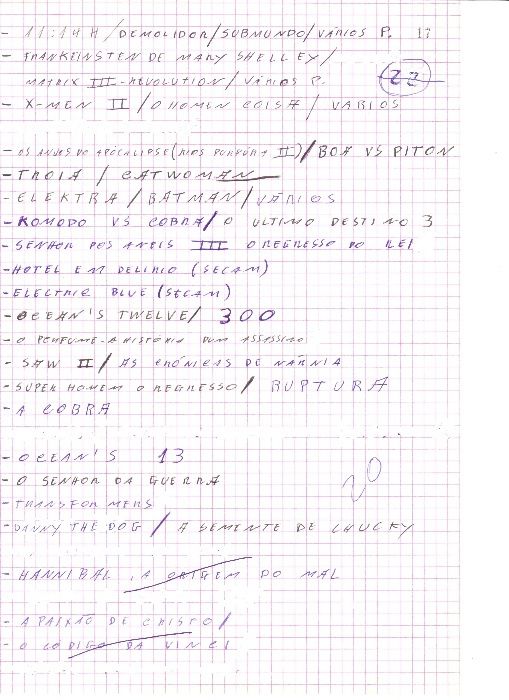 - 11:14 H / DEMOLIDOR / SUBMUNDO / VÁRIOS P. 17
- FRANKEINSTEN DE MARY SHELLEY /
MATRIX III - REVOLUTION / VÁRIOS P. 22
- X-MEN II / O HOMEN COISA / VARIOS
- OS ANJOS DO APÓCALIPSE (RIOS PURPURA II) / BOA VS PITON
- TROIA / CATWOMAN
- ELEKTRA / BATMAN / VÁRIOS
- KOMODO VS COBRA / O ULTIMO DESTINO 3
- SENHOR DOS ANEIS III O REGRESSO DO REI
- HOTEL EM DELIRIO (SECAM)
- ELECTRIC BLUE (SECAM)
- OCEAN'S TWELVE / 300
- O PERFUME - A HISTÓRIA DUM ASSASSINO
- SAW II / AS CRÓNICAS DE NÁRNIA
- SUPER HOMEM O REGRESSO / RUPTURA
- A COBRA
- OCEAN'S 13
- O SENHOR DA GUERRA 20
- TRANSFORMERS
- DANNY THE DOG / A SEMENTE DE CHUCKY
- HANNIBAL, A ORIGEM DO MAL
- A PAIXÃO DE CRISTO /
- O CÓDIGO DA VINCI